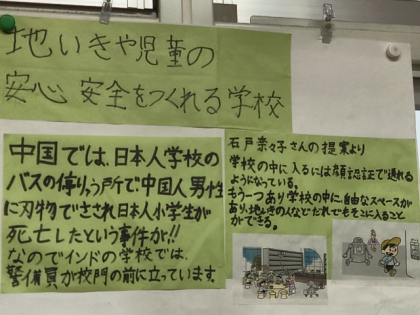 地いきや児童の
安心 安全をつくれる学校
中国では、日本人学校の
バスの停りゅう所で中国人男性
に刃物でさされ日本人小学生が
死亡したという事件が!!
なのでインドの学校では、
警備員が校門の前に立っています。
石戸奈々子さんの提案より
学校の中に入るには顔認証で通れる
ようになっている。
もう一つあり学校の中に、自由なスペースが
あり、地いきの人などだれでもそこに入ること
ができる。